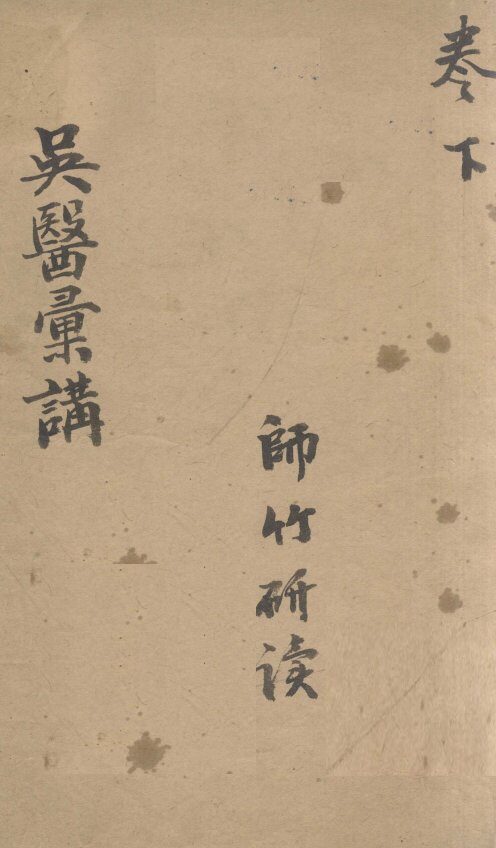 卷下
師竹研读
吳醫彙講